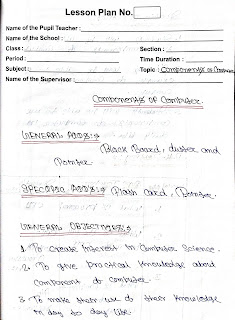 Lesson Plan No.
Name of the Pupil Teacher :
Name of the School :
Class : Section :
Period : Time Duration :
Subject : Topic : Components of Computer
Name of the Supervisor :
Components of Computer.
GENERAL AIDS :-
Black Board, duster and
Pointer.
SPECIFIC AIDS :- Flash Card, Pointer.
GENERAL OBJECTIVES :-
1. To create Interest in Computer Science.
2. To give practical knowledge about
component of computer.
3. To make their use of their knowledge
in day to day life.